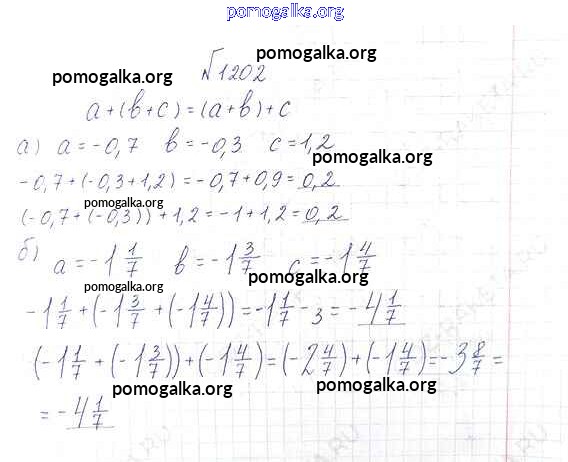 pomogalka.org
№1202
pomogalka.org
pomogalka.org
a+(b+c)=(a+b)+c
а) a=-0,7 b=-0,3 c=1,2
pomogalka.org
-0,7+(-0,3+1,2)=-0,7+0,9=0,2
pomogalka.org
(-0,7+(-0,3))+1,2=-1+1,2=0,2
б) a=-1 1/7 b=-1 3/7 c=-1 4/7
pomogalka.org
pomogalka.org
-1 1/7+(-1 3/7+(-1 4/7))=-1 1/7-3=-4 1/7
pomogalka.org
(-1 1/7+(-1 3/7))+(-1 4/7)=(-2 4/7)+(-1 4/7)=-3 8/7=
pomogalka.org
pomogalka.org
=-4 1/7